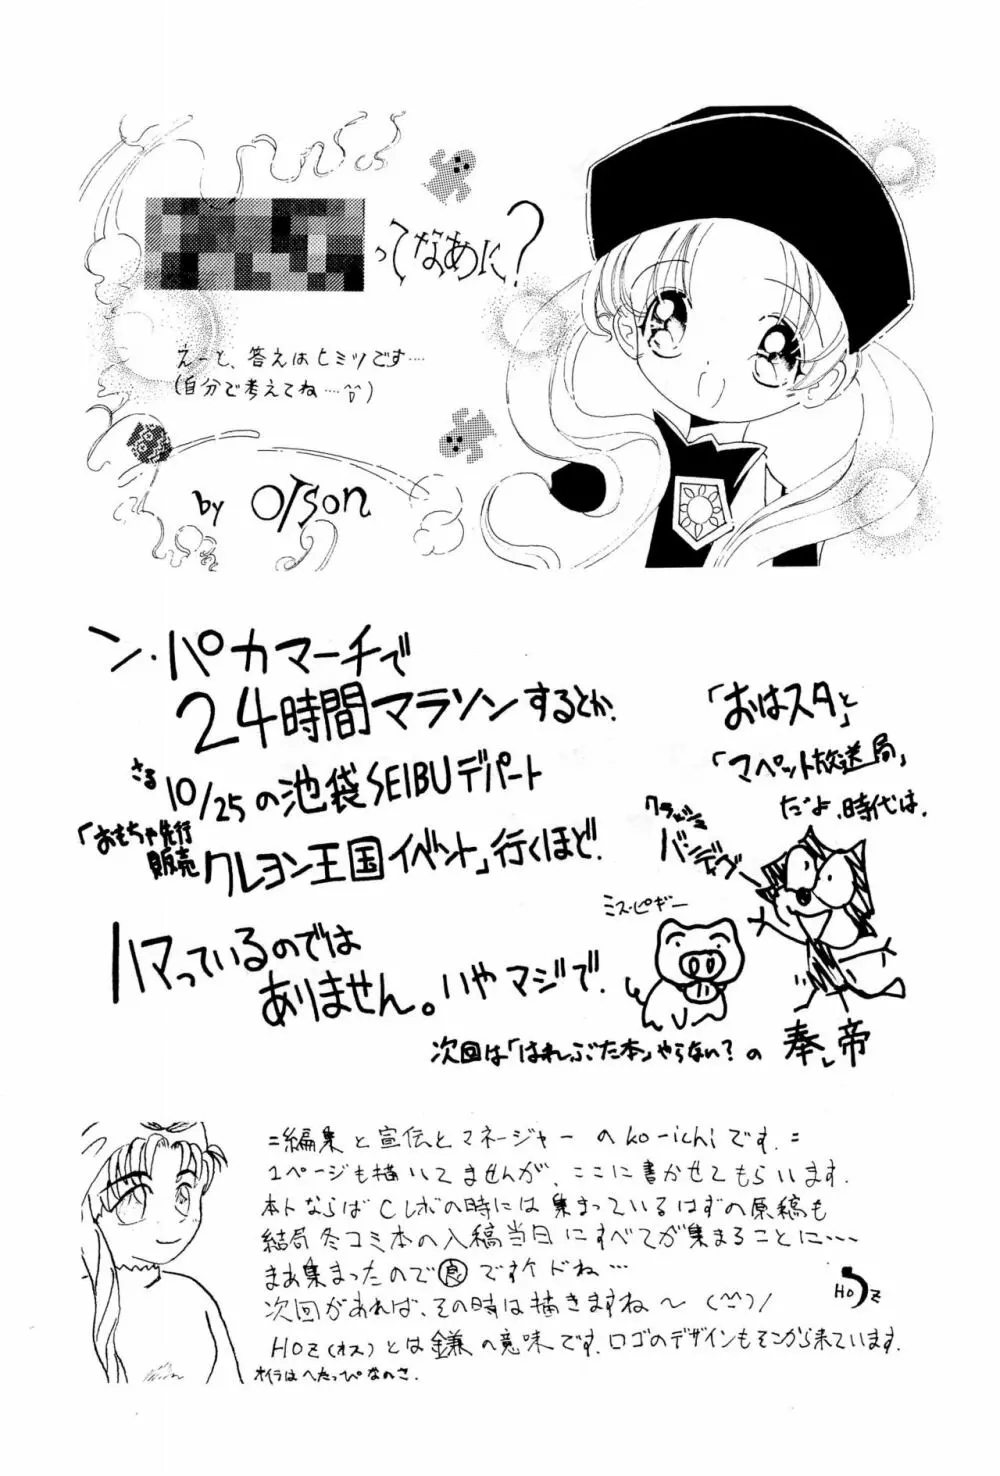 ってなあに?
えーと、答えはヒミツです…
(自分で考えてね…^^)
by OTson
ン・パカマーチで
24時間マラソンするとか、
さる
10/25の池袋SEIBUデパート
「おもちゃ先行
販売
クレヨン王国イベント」行くほど、
ハマっているのでは
ありません。いやマジで、
「おはスタ」と
「マペット放送局」
だよ、時代は、
クラッシュ
バンディグー
ミス・ピギー
次回は「はれぶた本」やらない?の
奉帝
=編集と宣伝とマネージャーのko-ichiです.=
1ページも描いてませんが、ここに書かせてもらいます.
本トならばCレボの時には集まっているはずの原稿も
結局冬コミ本の入稿当日にすべてが集まることに・・・・
まあ集まったので良ですケドね…
次回があれば、その時は描きますね〜(^^)/
HOz
HOz(オス)とは鎌の意味です.ロゴのデザインもそこから来ています.
オイラはへたっぴなのさ.